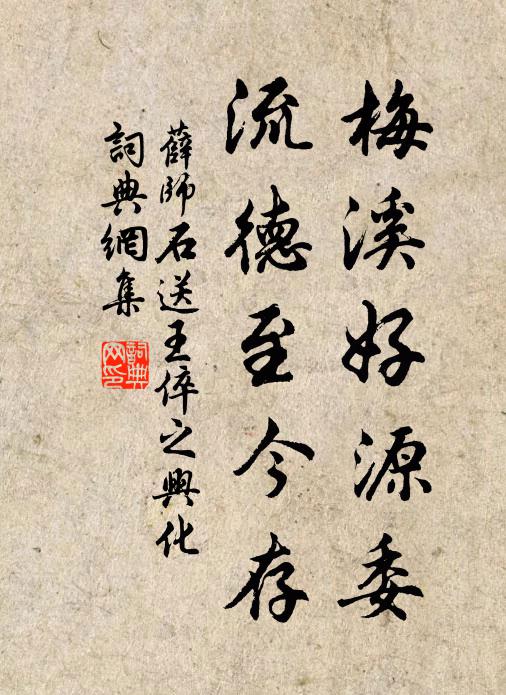 梅溪好源委
流德至今存
薛師石送王倅之興化
詞典網集
詞典網印